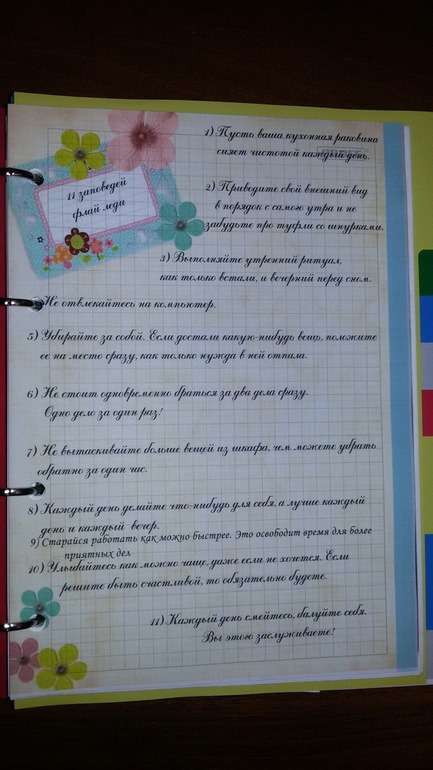 11 заповедей
флай леди
1) Пусть ваша кухонная раковина
сияет чистотой каждый день.
2) Приведите свой внешний вид
в порядок с самого утра и не
забудьте про туфли со шнурками.
3) Выполняйте утренний ритуал,
как только встали, и вечерний перед сном.
Не отвлекайтесь на компьютер.
5) Убирайте за собой. Если достали какую-нибудь вещь, положите
ее на место сразу, как только нужда в ней отпала.
6) Не стоит одновременно браться за два дела сразу.
Одно дело за один раз!
7) Не вытаскивайте больше вещей из шкафа, чем можете убрать
обратно за один час.
8) Каждый день делайте что-нибудь для себя, а лучше каждый
день и каждый вечер.
9) Старайся работать как можно быстрее. Это освободит время для более
приятных дел
10) Улыбайтесь как можно чаще, даже если не хочется. Если
решите быть счастливой, то обязательно будете.
11) Каждый день смейтесь, балуйте себя.
Вы этого заслуживаете!